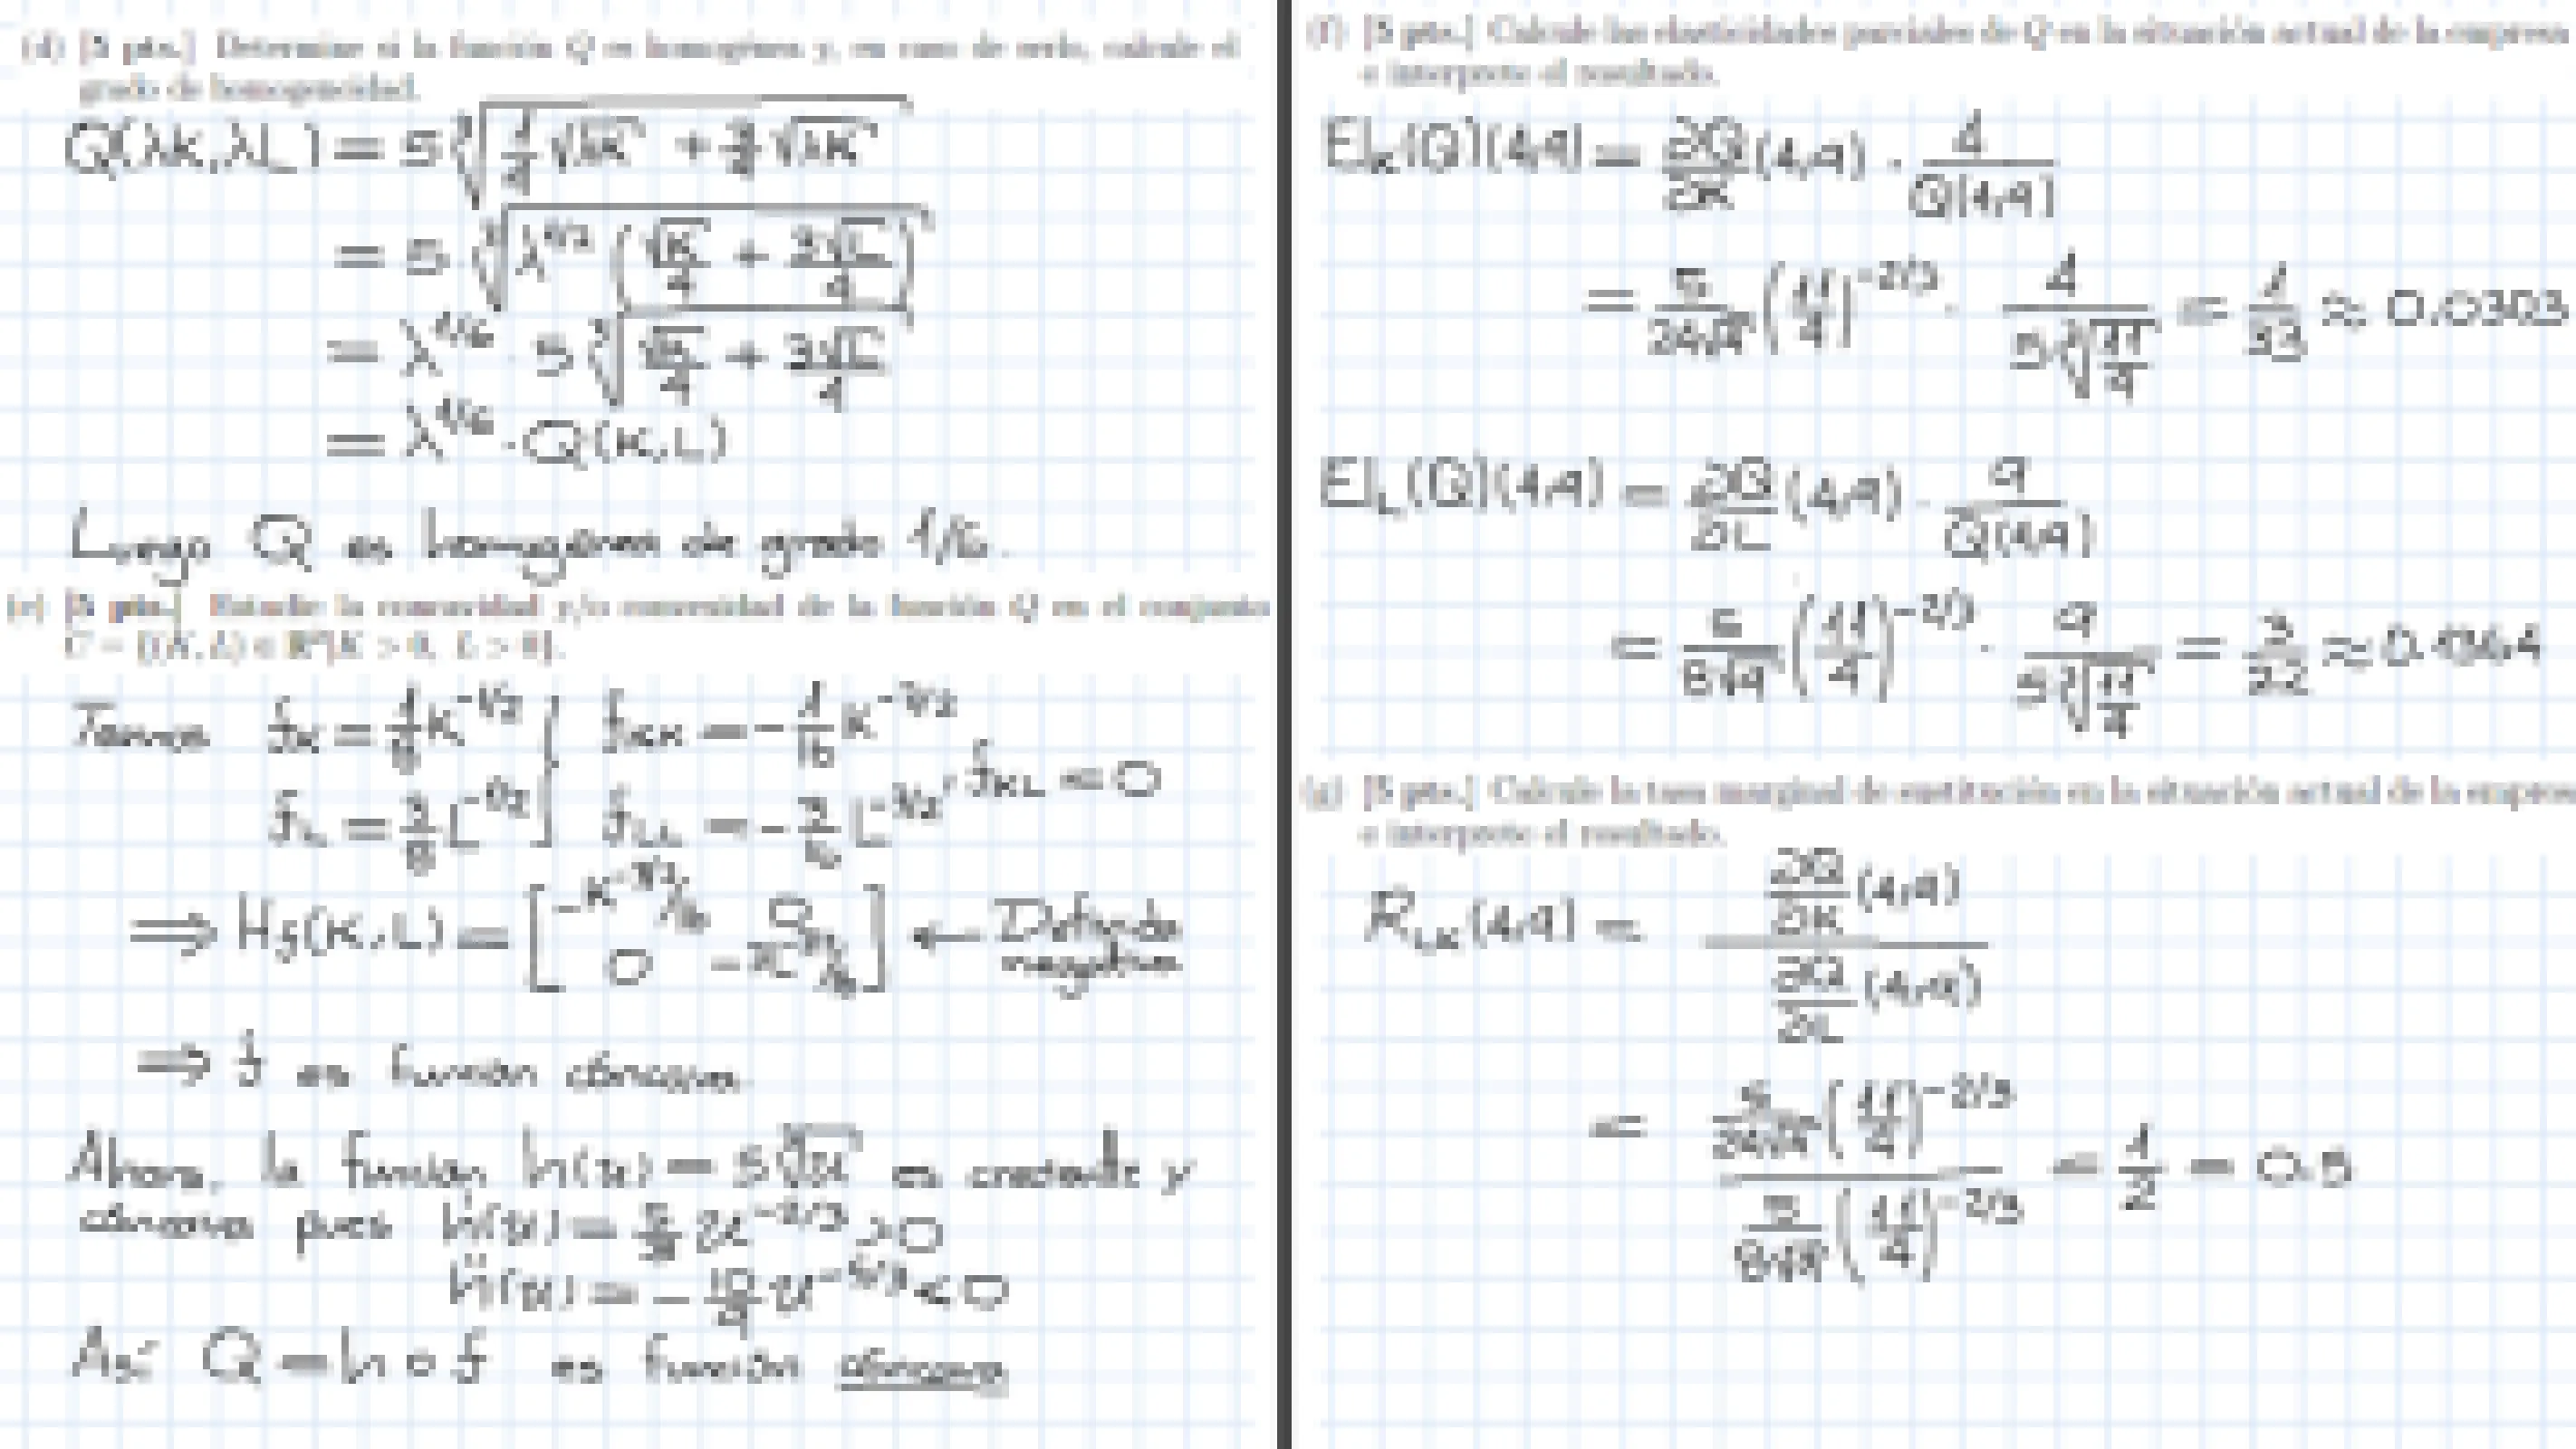 (d) [5 pts.] Determine si la función Q es homogénea y, en caso de serlo, calcule el
grado de homogeneidad.
Q(λK,λL) = 5∛(1/4 √λK + 3/4 √λK)
= 5 ∛(λ^1/2 (√K/4 + 3√L/4))
= λ^1/6 · 5 ∛(√K/4 + 3√L/4)
= λ^1/6 · Q(K,L)
Luego Q es homogénea de grado 1/6.
(e) [5 pts.] Estudie la concavidad y/o convexidad de la función Q en el conjunto
C = {(K, L) ∈ R²|K > 0, L > 0}.
f_K = 1/8 K^-1/2 } f_KK = -1/16 K^-3/2
f_L = 3/8 L^-1/2 } f_LL = -3/16 L^-3/2, f_KL = 0
⟹ Hf(K,L) = [ 0 0 ] ← Definida negativa
⟹ f es función cóncava
Ahora, la función h(u) = 5∛u es creciente y
cóncava pues h'(u) = 5/3 u^-2/3 > 0
h''(u) = -10/9 u^-5/3 < 0
Así Q = h ∘ f es función cóncava
(f) [5 pts.] Calcule las elasticidades parciales de Q en la situación actual de la empresa
e interprete el resultado.
El_K(Q)(4,9) = ∂Q/∂K (4,9) · 4/Q(4,9)
= 5/24√4 (11/4)^-2/3 · 4/5∛(11/4) = 1/33 ≈ 0.0303
El_L(Q)(4,9) = ∂Q/∂L (4,9) · 9/Q(4,9)
= 5/8√9 (11/4)^-2/3 · 9/5∛(11/4) = 3/22 ≈ 0.1364
(g) [5 pts.] Calcule la tasa marginal de sustitución en la situación actual de la empresa
e interprete el resultado.
R_LK(4,9) = ∂Q/∂K (4,9) / ∂Q/∂L (4,9)
= 5/24√4 (11/4)^-2/3 / 5/8√9 (11/4)^-2/3 = 1/2 = 0.5